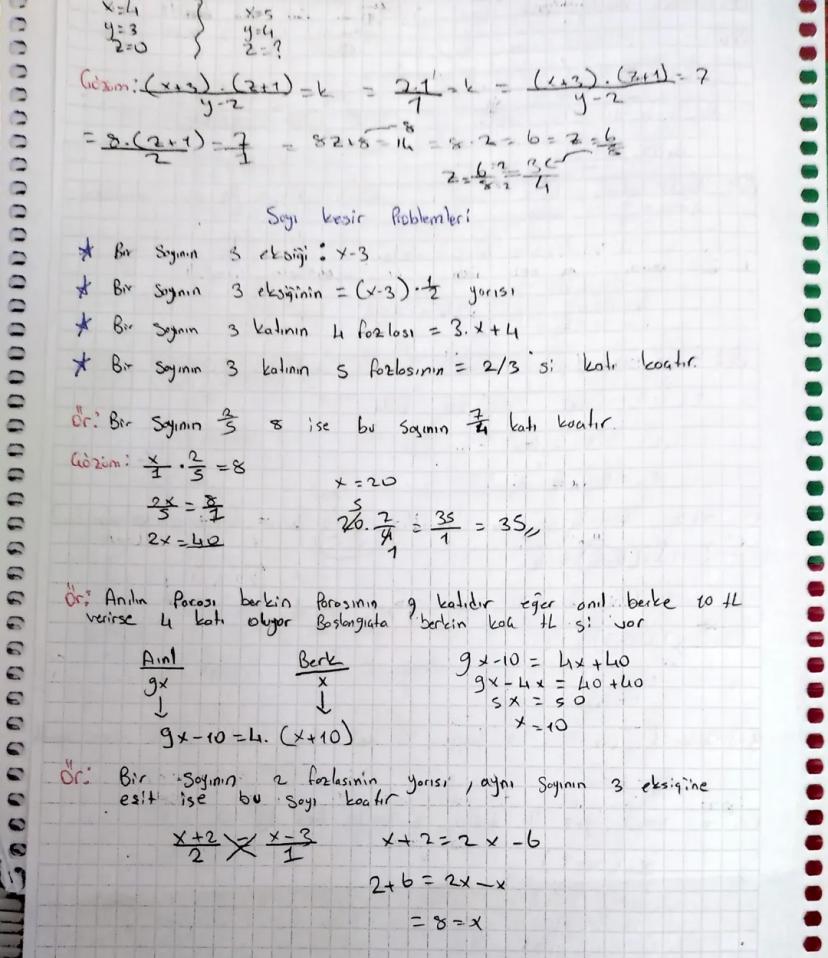 x=4 x=5
y=3 y=4
z=0 z=?
Çözüm: (x+3).(z+1)/y-2 = k = 7.1/1 = k = (x+3).(z+1)/y-2 = 7
= 8.(z+1)/2 = 7/1 = 8z+8 = 14 = 8.z = 6 = z = 6/8
z = 6:2/8:2 = 3/4
Sayı kesir Problemleri
★ Bir Sayının 3 eksiği : x-3
★ Bir Sayının 3 eksiğinin = (x-3).1/2 yarısı
★ Bir Sayının 3 katının 4 fazlası = 3.x+4
★ Bir Sayının 3 katının 5 fazlasının = 2/3 'si katı kaçtır.
Ör: Bir Sayının 2/5 8 ise bu sayının 7/4 katı kaçtır.
Çözüm: x/1 . 2/5 = 8
x=20
2x/5 = 8/1
5 20. 7/4 1 = 35/1 = 35,,
2x=40
Ör: Anılın Parası berkin Parasının 9 katıdır eğer anıl berke 10 tL
verirse 4 katı oluyor Başlangıçta berkin kaç tL si var
Aınl Berk 9x-10 = 4x+40
9x x 9x-4x = 40+40
↓ ↓ 5x = 50
x=10
9x-10=4.(x+10)
Ör: Bir Sayının 2 fazlasinin yarısı, aynı Sayının 3 eksiğine
eşit ise bu sayı kaçtır
x+2/2 = x-3/1 x+2=2x-6
2+6 = 2x-x
= 8=x